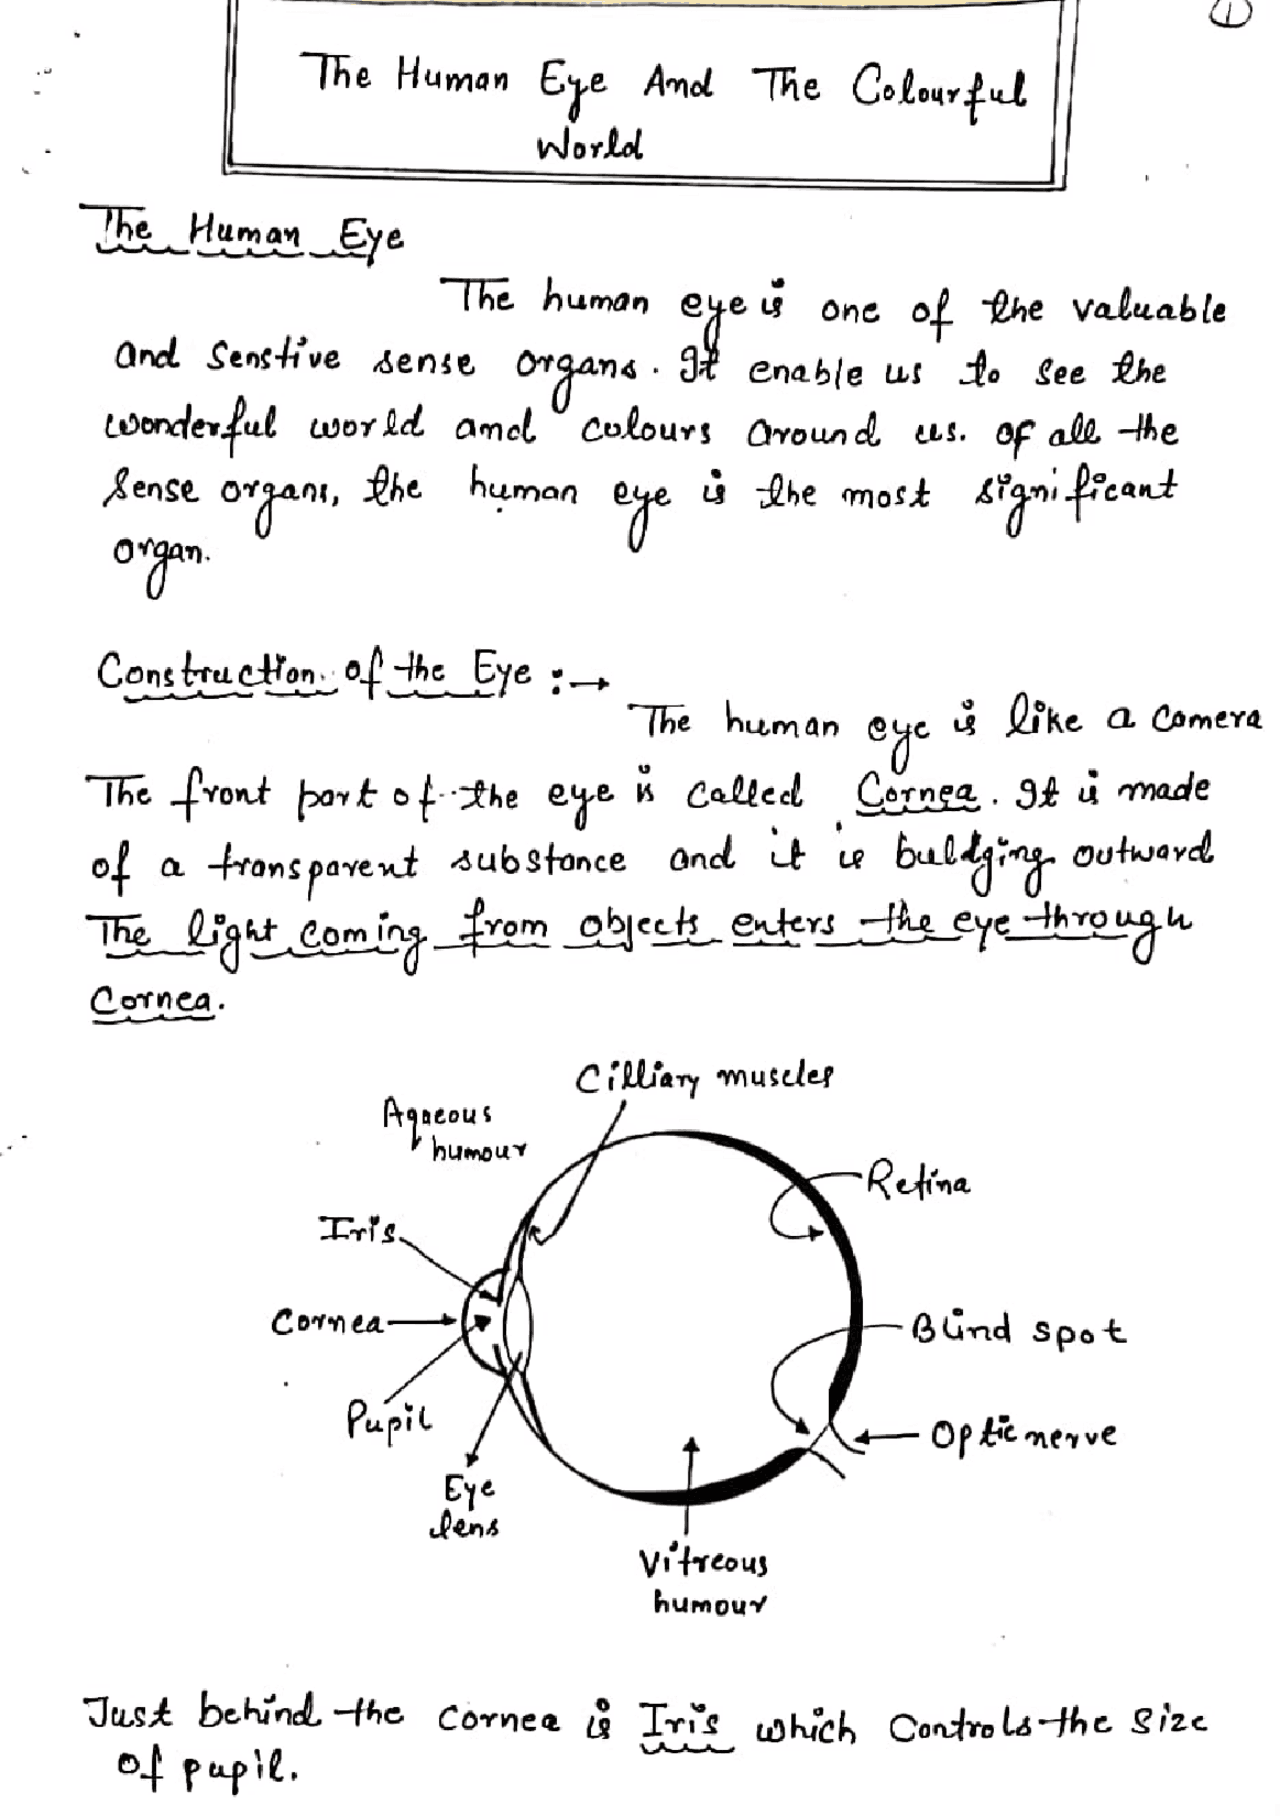 1
The Human Eye And The Colourful
World
The Human Eye
The human eye is one of the valuable
and senstive sense organs. It enable us to see the
wonderful world and colours around us. Of all the
sense organs, the human eye is the most significant
organ.
Construction of the Eye :→
The human eye is like a camera
The front part of the eye is called Cornea. It is made
of a transparent substance and it is buldging outward
The light coming from objects enters the eye through
Cornea.
Cilliary muscles
Aqueous
humour
Retina
Iris
Cornea
Blind spot
Pupil
Optic nerve
Eye
lens
Vitreous
humour
Just behind the cornea is Iris which controls the size
of pupil.